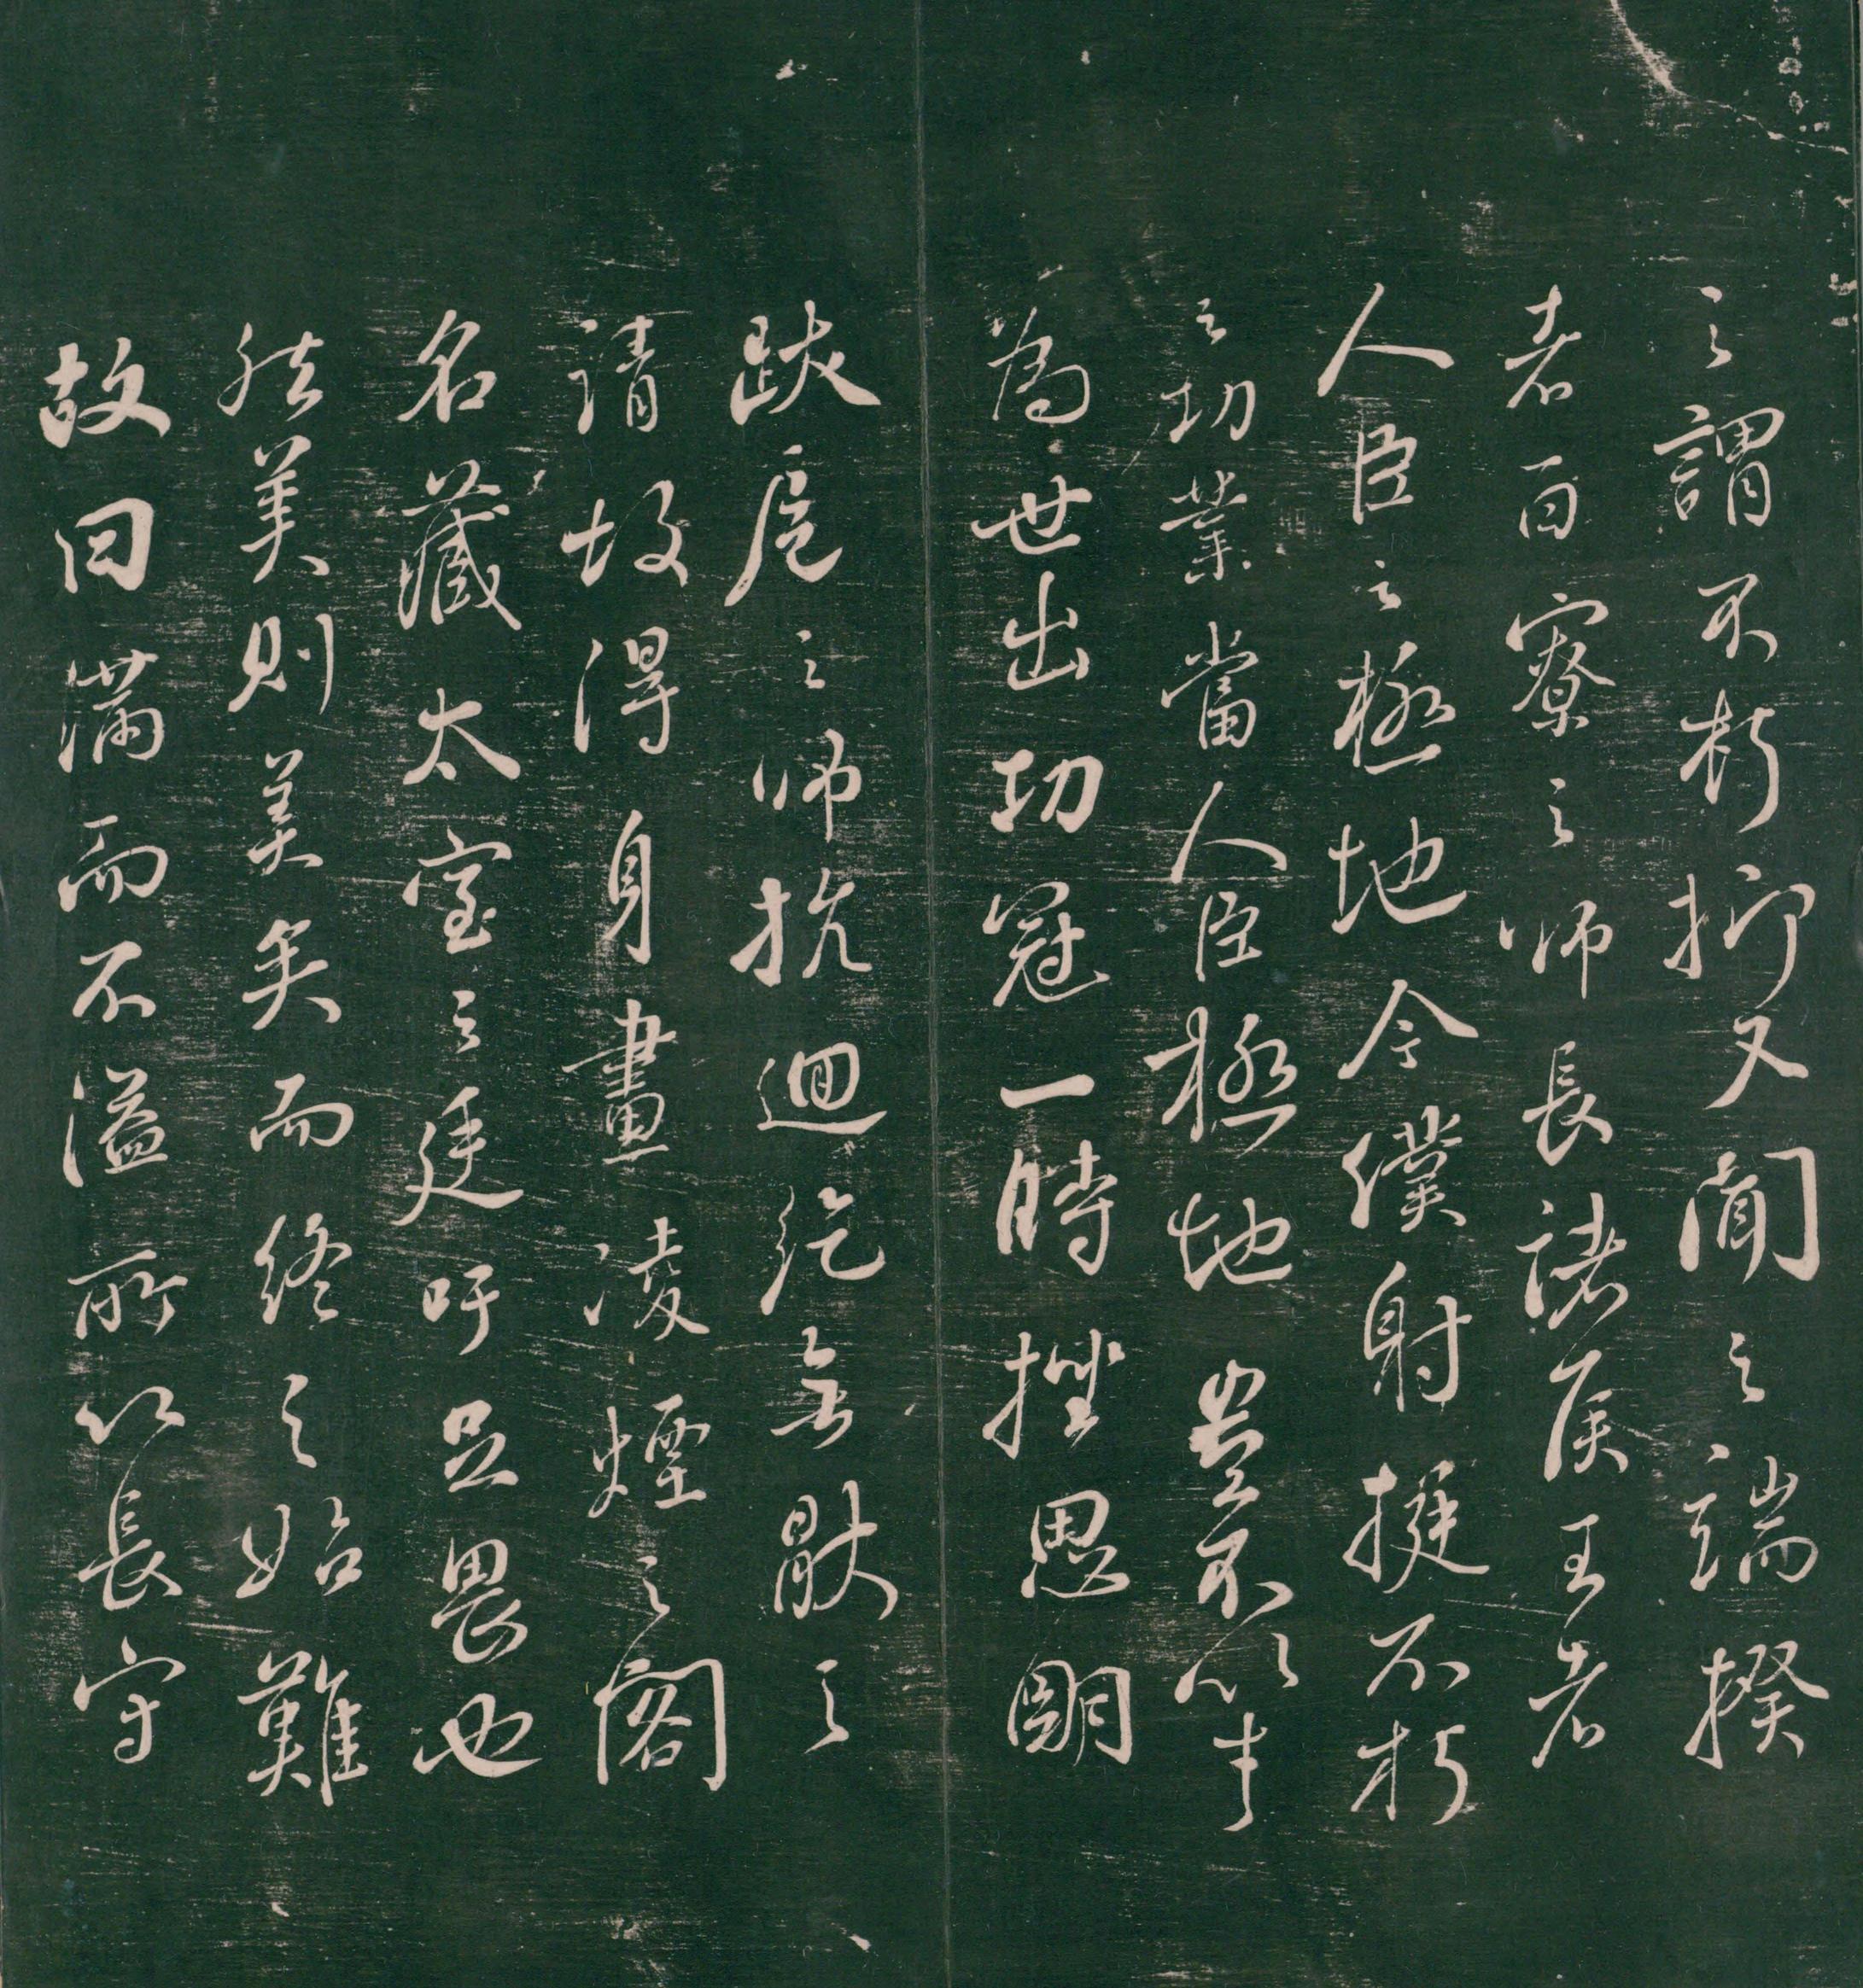 之謂不朽抑又聞之端揆
者百寮之師長諸侯王者
人臣之極地今僕射挺不朽
之功業當人臣極地豈不以才
為世出功冠一時挫思明
跋扈之師抗迴紇無猒之
請故得身畫凌煙之閣
名藏太室之廷吁足畏也
然美則美矣而終之始難
故曰滿而不溢所以長守